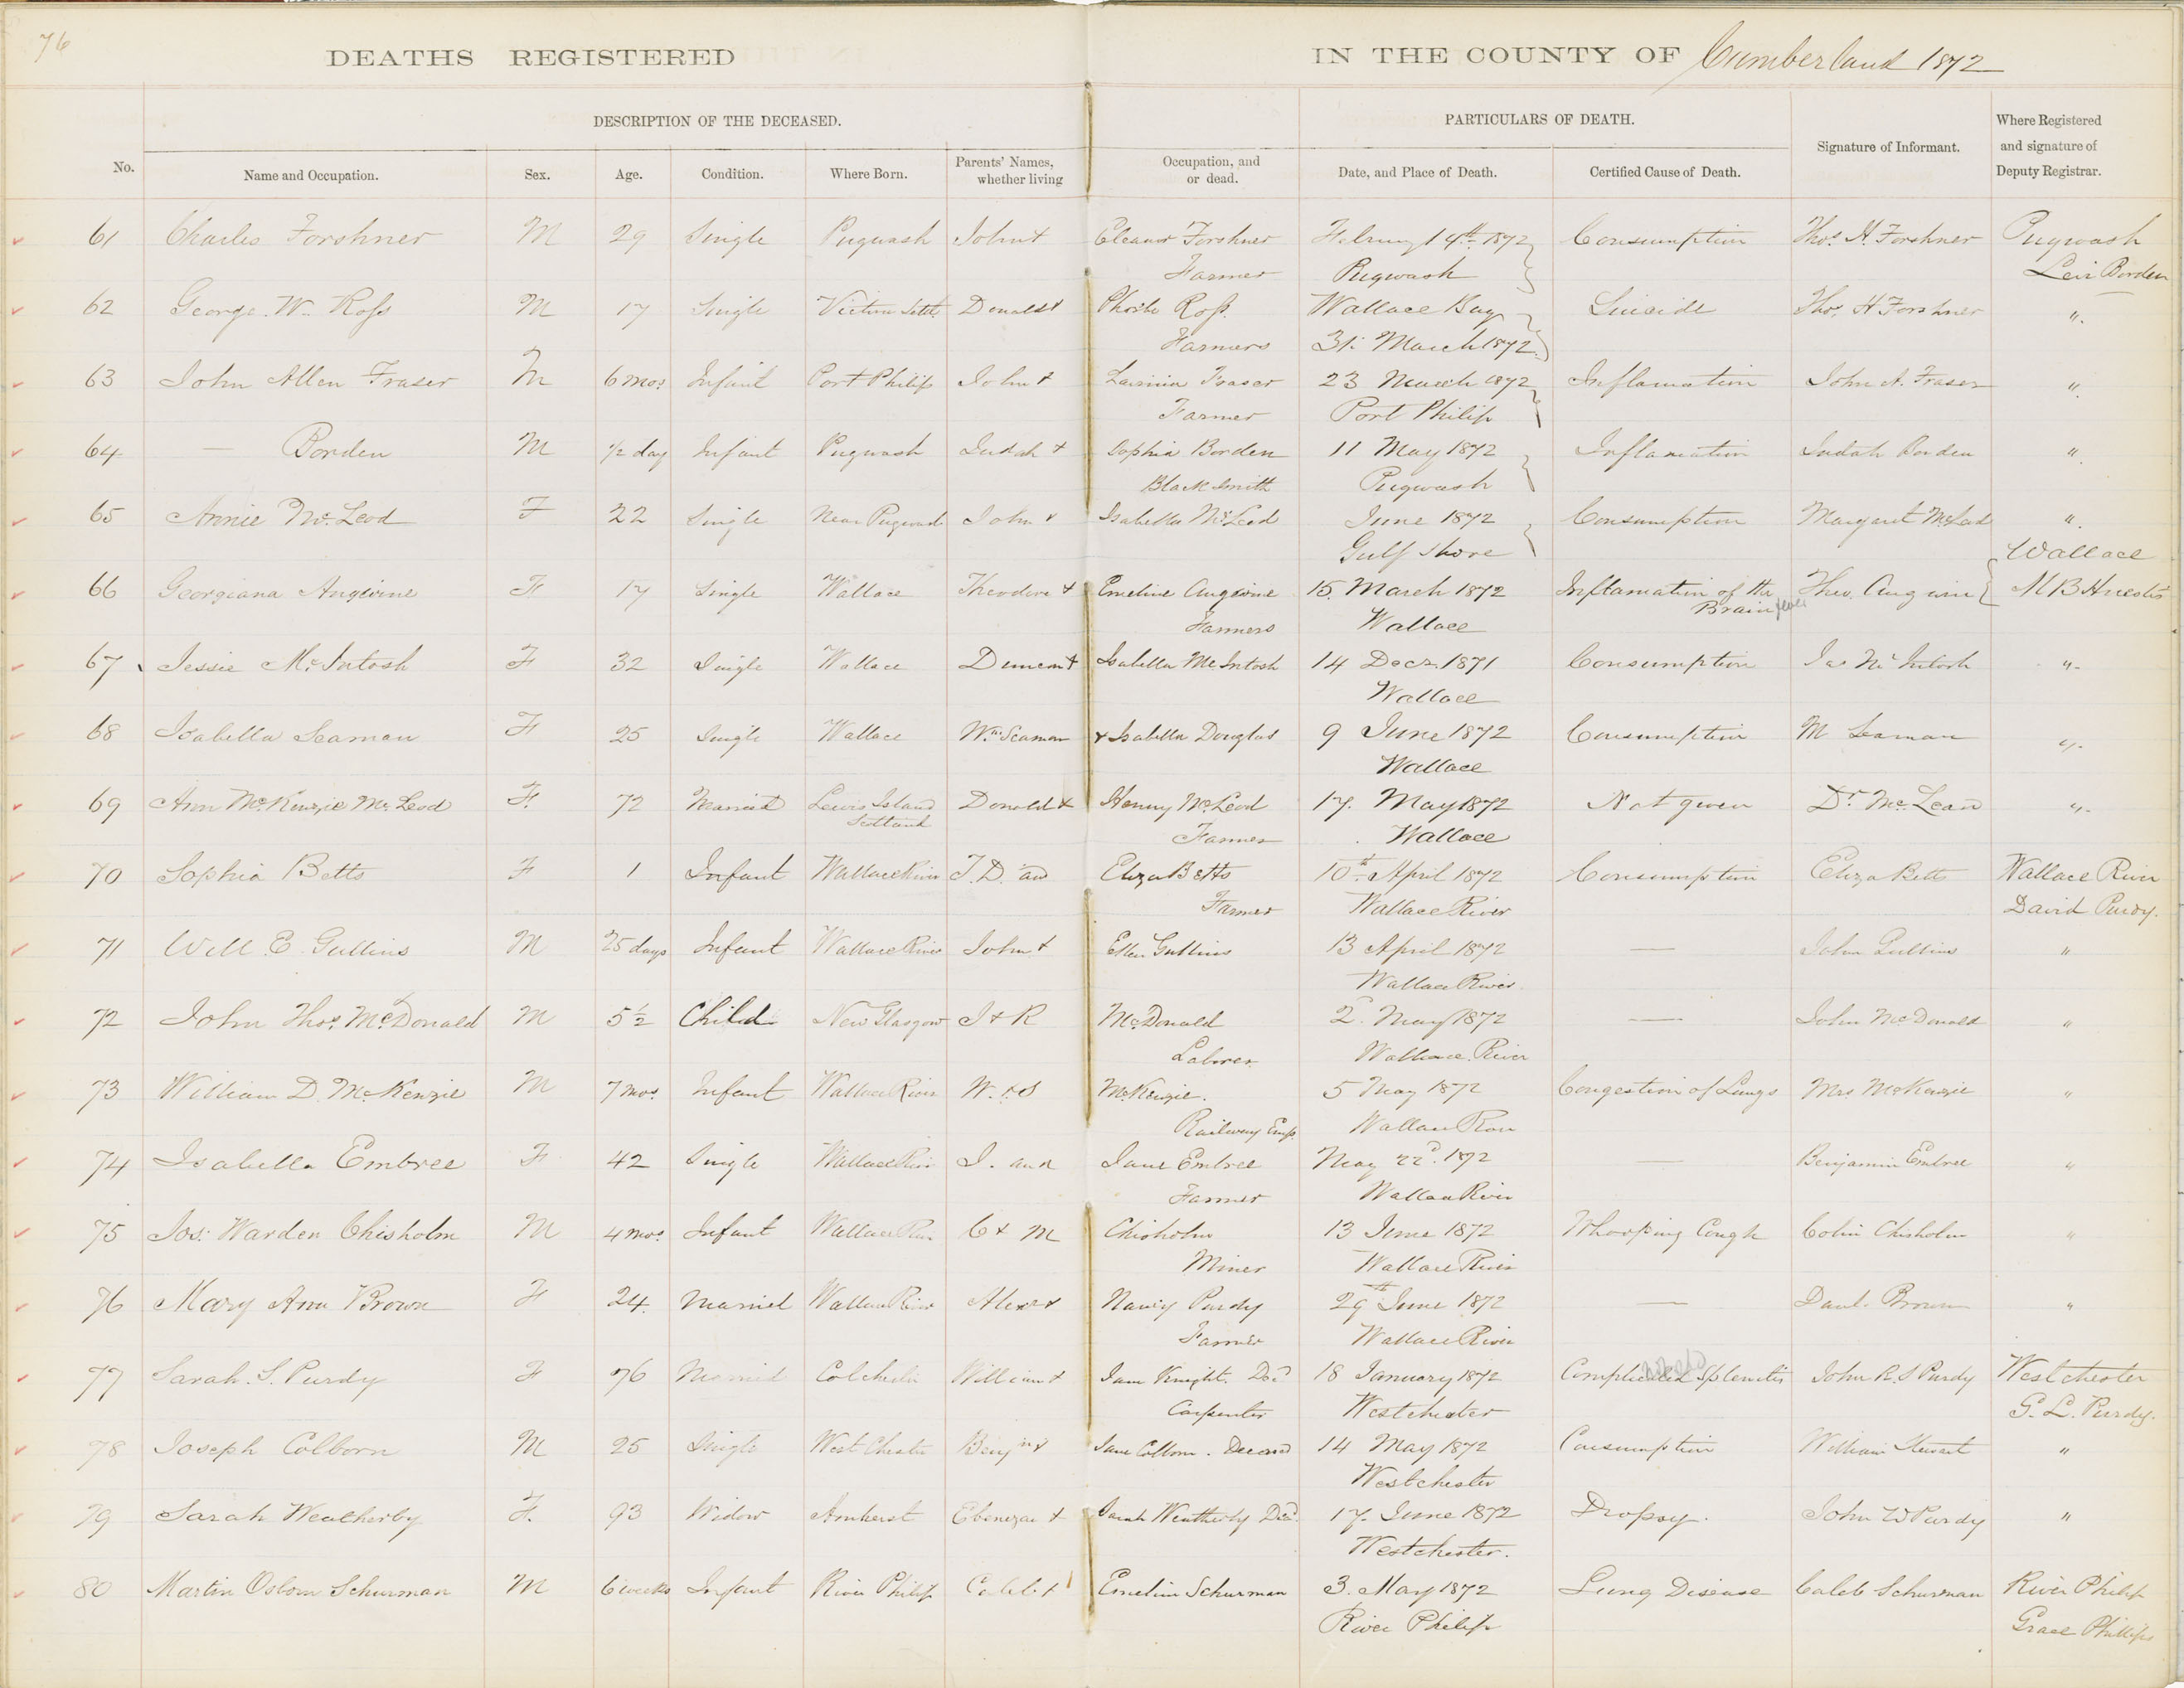 76
DEATHS REGISTERED IN THE COUNTY OF Cumberland 1872
DESCRIPTION OF THE DECEASED. PARTICULARS OF DEATH. Signature of Informant. Where Registered and signature of Deputy Registrar.
No. Name and Occupation. Sex. Age. Condition. Where Born. Parents' Names, whether living Occupation, and or dead. Date, and Place of Death. Certified Cause of Death.
61 Charles Forshner M 29 Single Pugwash John + Eleanor Forshner 14th 1872 Consumption Thos. H. Forshner Pugwash
Farmer Pugwash Levi Borden
62 George. W. Ross M 17 Single Donald + Phoebe Ross. Wallace Bay Suicide Thos. H Forshner ".
Farmers 31. March 1872.
63 John Allen Fraser M 6 mos Infant Port Philip John + Fraser 23 March 1872 Inflamation John A. Fraser ".
Farmer Port Philip
64 — Borden M 1/2 day Infant Pugwash Judah + Sophia Borden 11 May 1872 Inflamation Judah Borden ".
Black Smith Pugwash
65 Annie McLeod F 22 Single Near Pugwash John + Isabella McLeod June 1872 Consumption Margaret McLeod ".
Gulf Shore Wallace
66 Georgiana Angevine F 17 Single Wallace Theodore + Emeline Angevine 15. March 1872 Inflamation of the Theo. Angevine M B Huestis
Farmers Wallace Brain fever
67 Jessie McIntosh F 32 Single Wallace Duncan + Isabella McIntosh 14 Decr. 1871 Consumption Jas McIntosh ".
Wallace
68 Isabella Seaman F 25 Single Wallace Wm. Seaman + Isabella Douglas 9 June 1872 Consumption M Seaman ".
Wallace
69 Ann McKenzie McLeod F. 72 Married Lewis Island Donald + McLeod 17. May 1872 Not given Dr. McLean ".
Scotland Farmer Wallace
70 Sophia Betts F 1 Infant Wallace River T. D. and Eliza Betts 10th April 1872 Consumption Eliza Betts Wallace River
Farmer Wallace River David Purdy.
71 Will. E. Gullins M 25 days Infant Wallace River John + Ellen Gullins 13 April 1872 — John Gullins "
Wallace River.
72 John Thos. McDonald M 5½ Child New Glasgow J + R McDonald 2. May 1872 — John McDonald "
Laborer. Wallace River
73 William D. McKenzie M 7 mos. Infant Wallace River W. + S McKenzie. 5 May 1872 Congestion of Lungs Mrs McKenzie "
Railway Emp. Wallace River
74 Isabella Embree F 42 Single Wallace River J. and Jane Embree May 22d. 1872 — Benjamin Embree "
Farmer Wallace River
75 Jos: Warden Chisholm M 4 mos. Infant Wallace River C + M Chisholm 13 June 1872 Whooping Cough Colin Chisholm "
Miner Wallace River
76 Mary Ann Brown F 24. Married Wallace River Alexr + Nancy Purdy 29th June 1872 — Danl. Brown "
Farmer Wallace River
77 Sarah. S. Purdy F 76 Married Colchester William + Jane Knight. Decd 18 January 1872 Complicated Splenitis John R. S Purdy Westchester
Carpenter Westchester G. L. Purdy.
78 Joseph Colborn M 25 Single West Chester Benjm + Jane Colborn. Deceased 14 May 1872 Consumption William Stewart "
Westchester
79 Sarah Weatherby F. 93 Widow Amherst Ebenezar + Sarah Weatherby Decd. 17. June 1872 Dropsy. John W Purdy "
Westchester.
80 Martin Osborn Schurman M 6 weeks Infant River Philip Caleb + Emelin Schurman 3. May 1872 Lung Disease Caleb Schurman River Philip
River Philip Grace Phillips